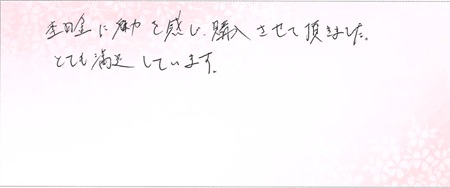 に魅力を感じ、購入させて頂きました。
とても満足しています。